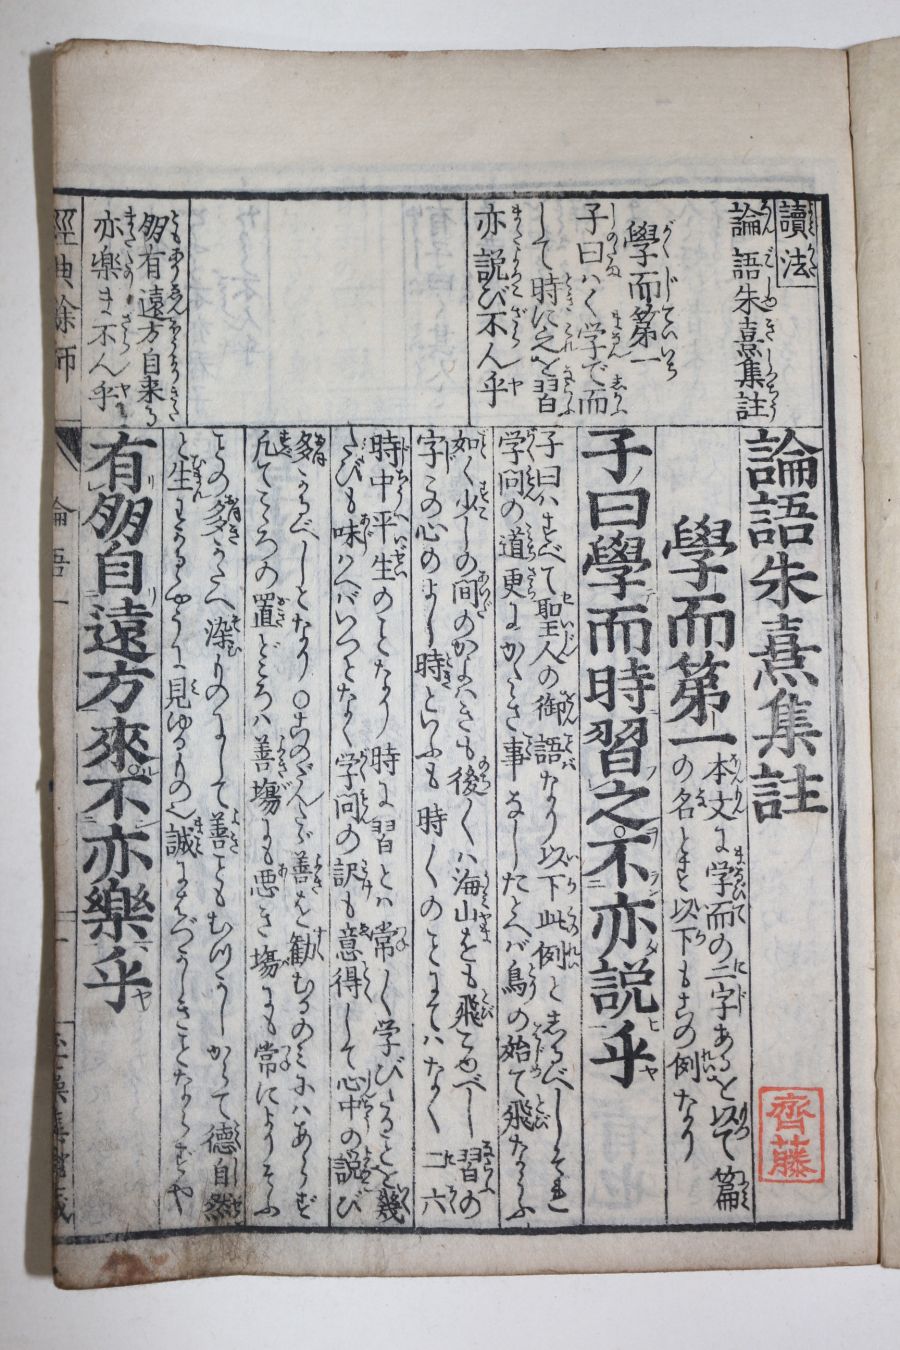 讀法
論語朱熹集註
學而第一
子曰ハく学で而
して時に之を習
亦説び不ん乎
有遠方自来る
亦楽ま不ん乎
論語朱熹集註
學而第一
本文に学而の二字あるを以て篇
の名とす以下もこの例なり
子曰學而時習之不亦説乎
子曰ハすべて聖人の御語なり以下此例としるべし
学問の道更にかたき事なしたとへバ鳥の始て飛ならふ
如く少しの間のかよハきも後々ハ海山をも飛こゆべし習の
字この心のよし時といふも時々のことにてハなく二六
時中平生のことなり時に習とハ常々学びたることを幾
たびも味ハへバいつとなく学問の訳も意得して心中の説び
多かるべしとなり○
善を勧むるのミにハあらず
凡てこゝろの置どころハ善き塲にも悪き塲にも常によりそふ
ものゝ多かたへ染ものにして善ともむつかしからて徳自然
と生ずるやうに見ゆるもの也誠に
有朋自遠方來不亦樂乎
經典餘師
論語一
齊藤